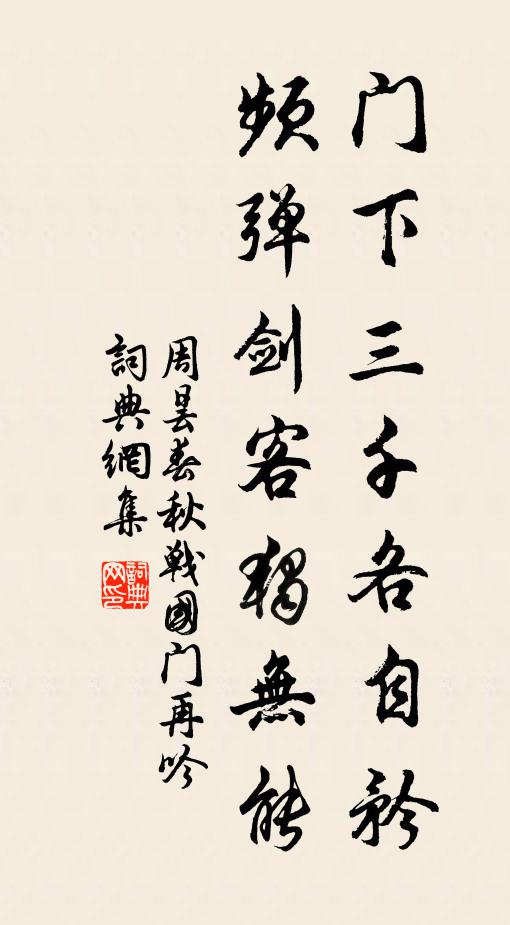 门下三千各自矜
频弹剑客独無能
周昙春秋戦國门再吟
詞典網集
詞典网印